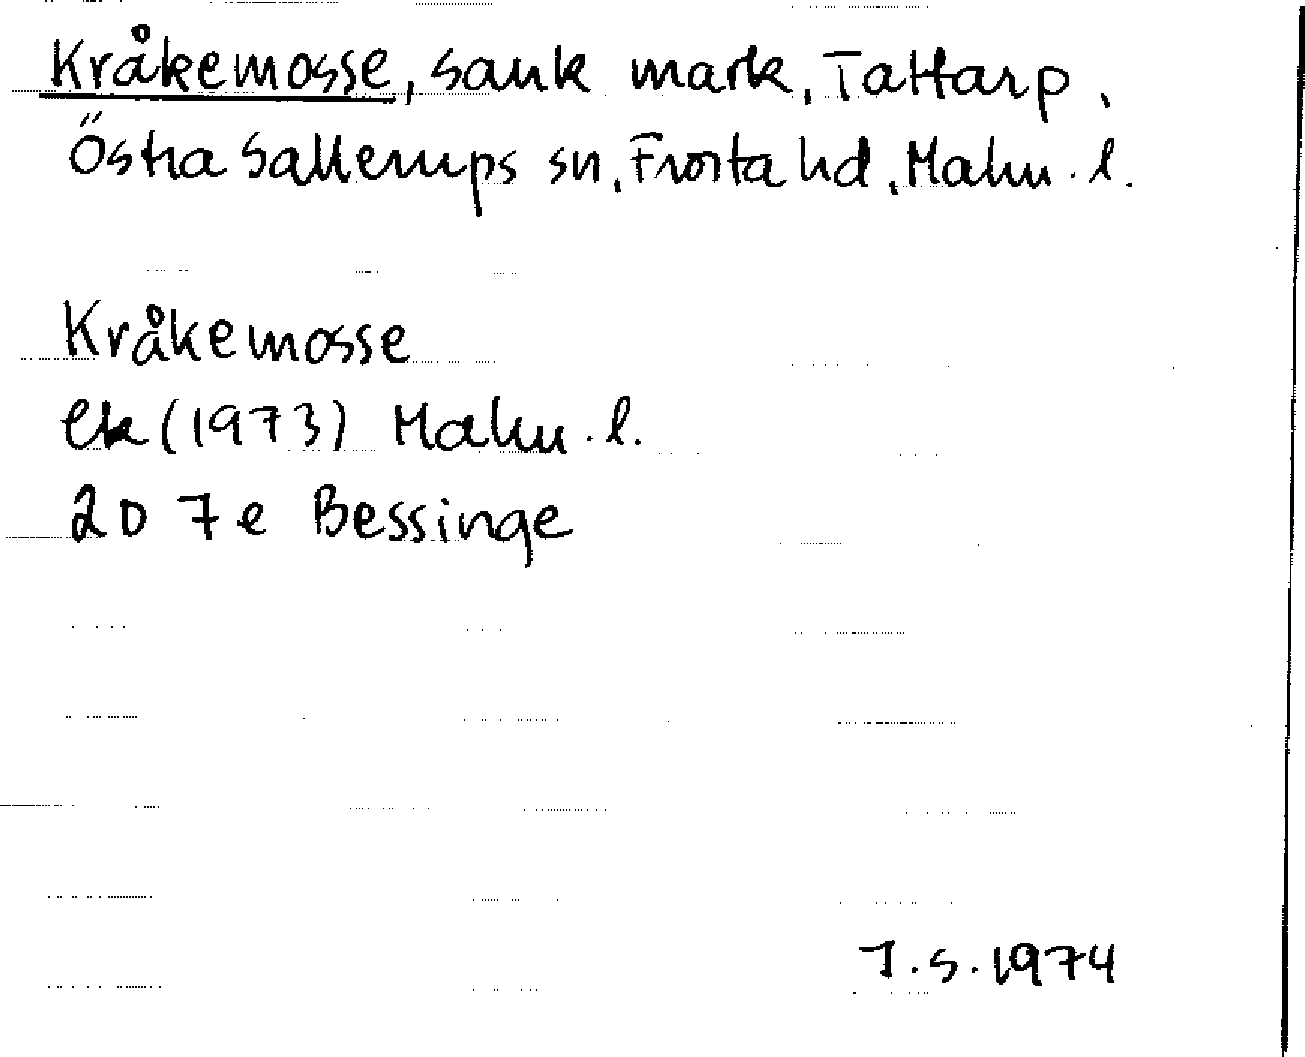 Kråkemosse, sank mark, Tattarp,
Östra Sallerups sn, Frosta hd, Malm. l.
Kråkemosse
ek (1973) Malm. l.
2D 7e Bessinge
J.S. 1974